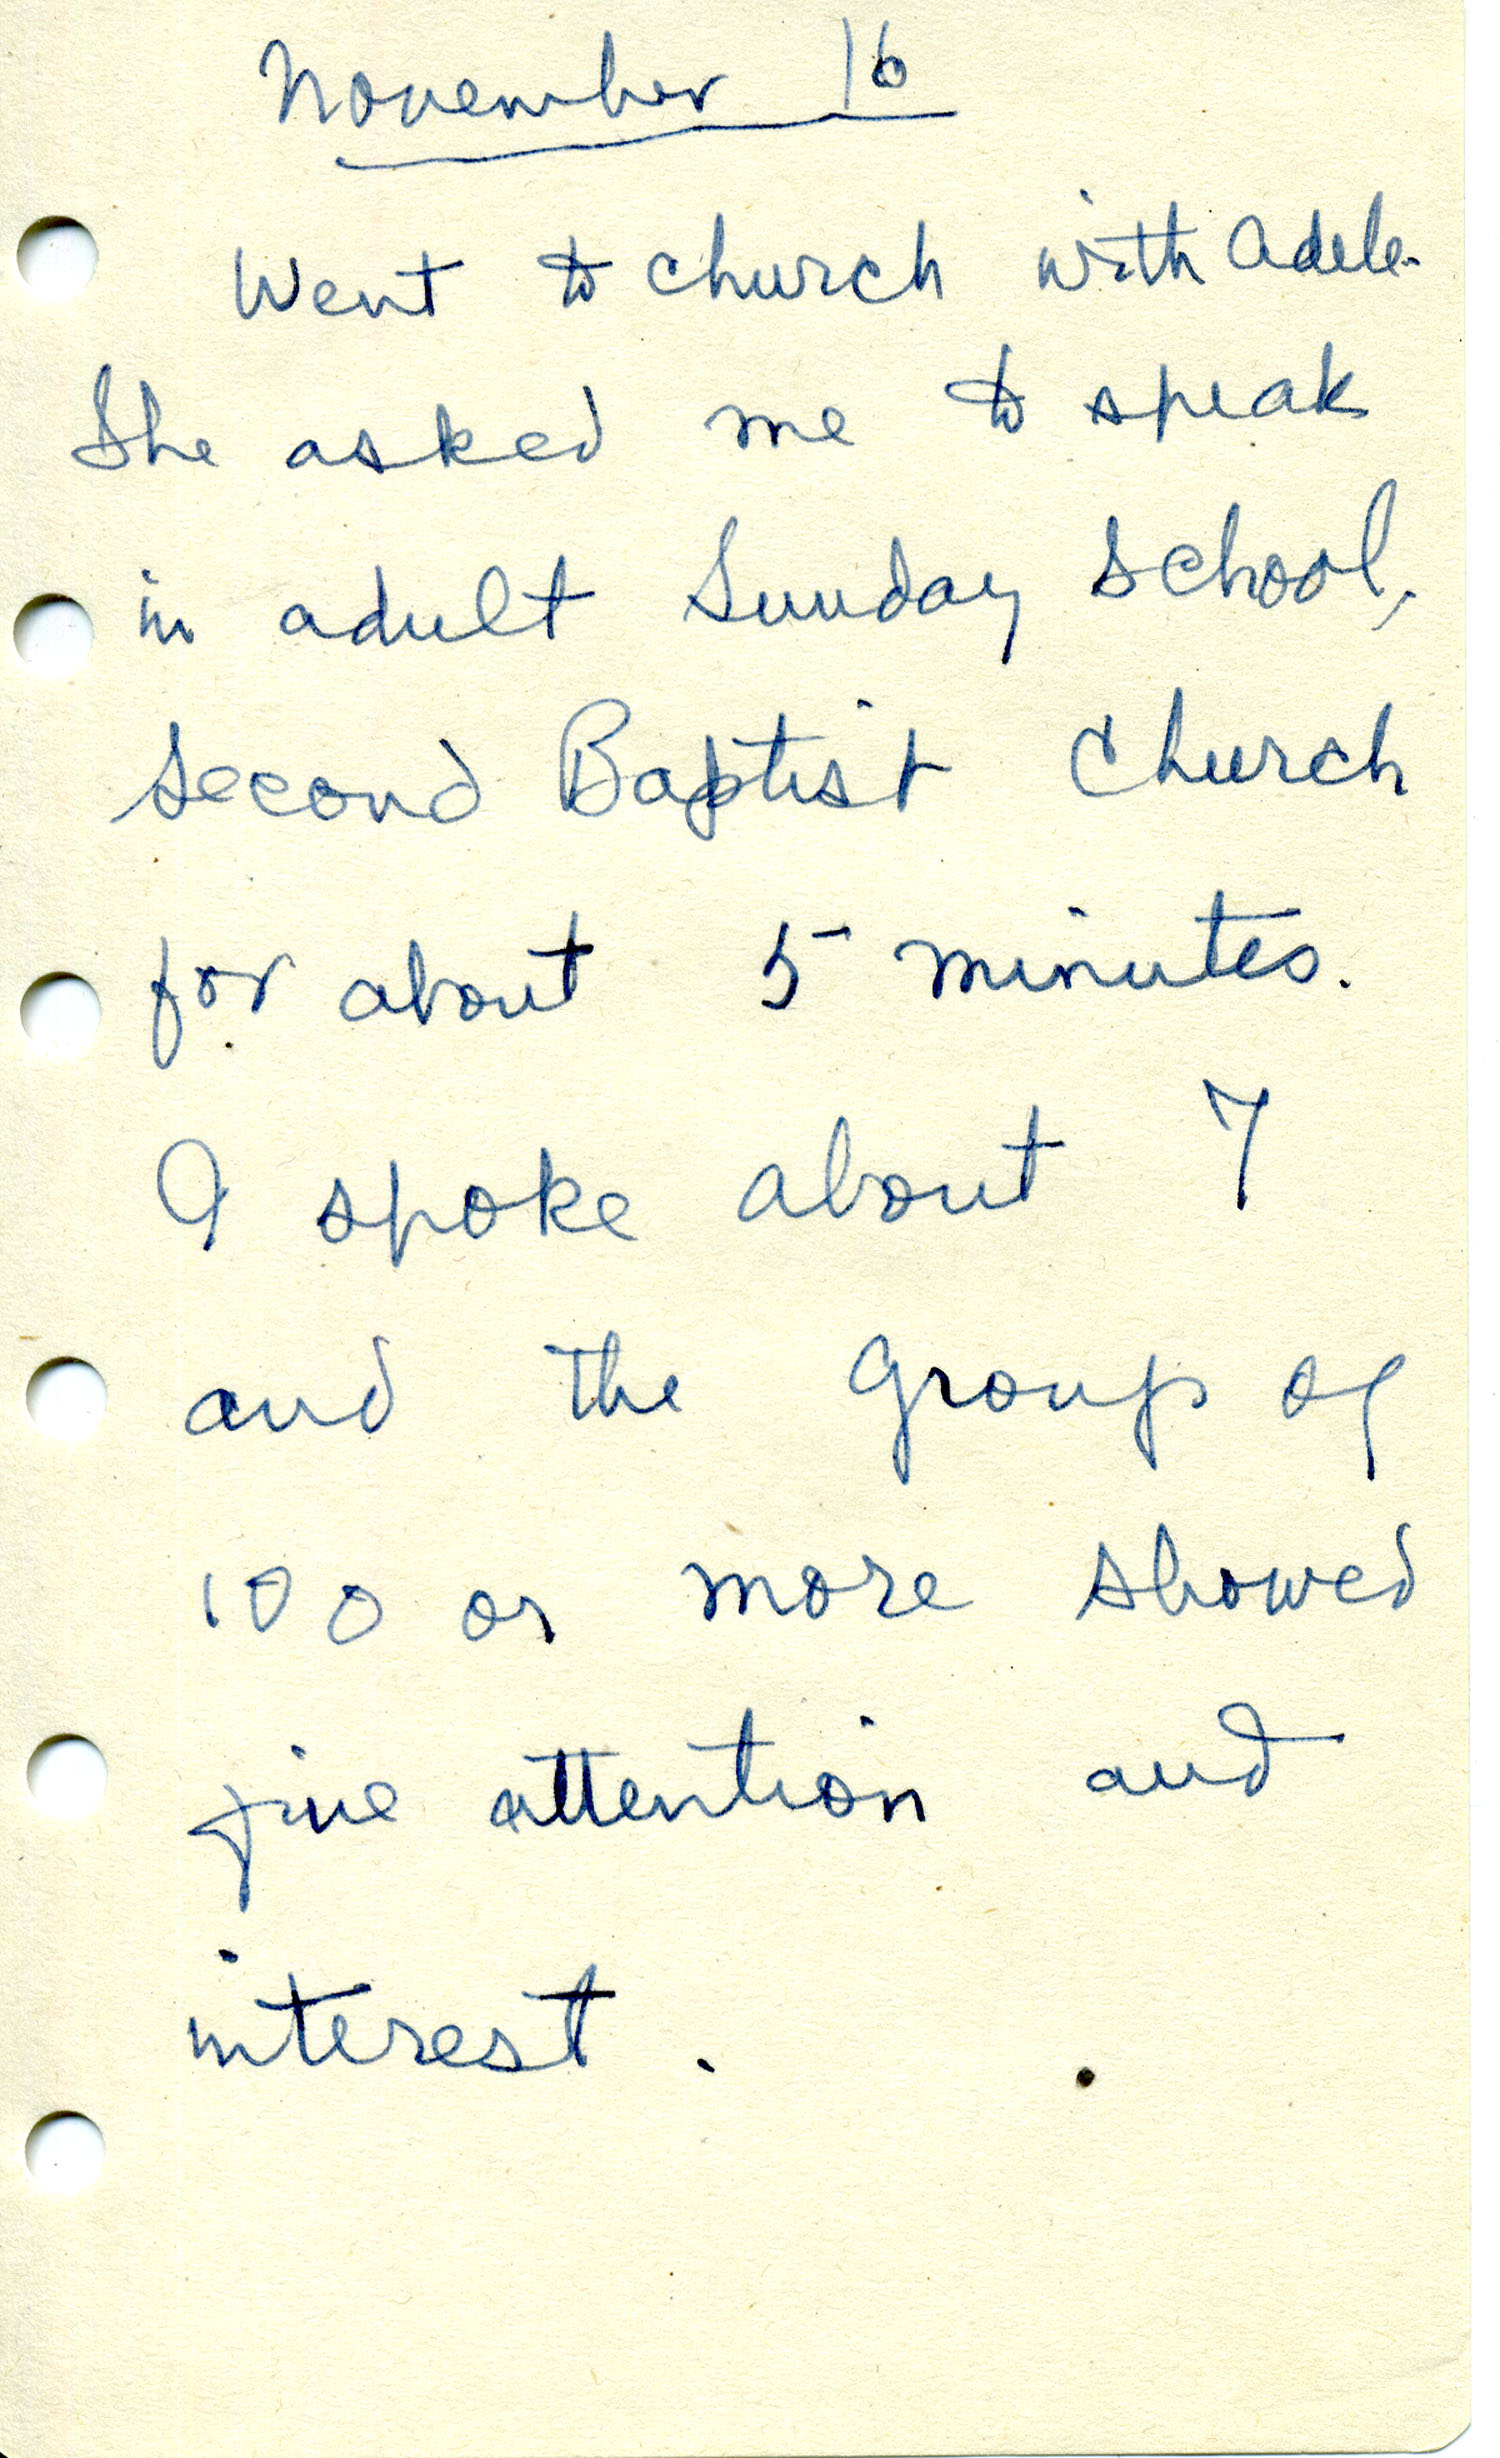 November 16
Went to church with Adele.
She asked me to speak
in adult Sunday School,
Second Baptist Church
for about 5 minutes.
I spoke about 7
and the group of
100 or more showed
fine attention and
interest.